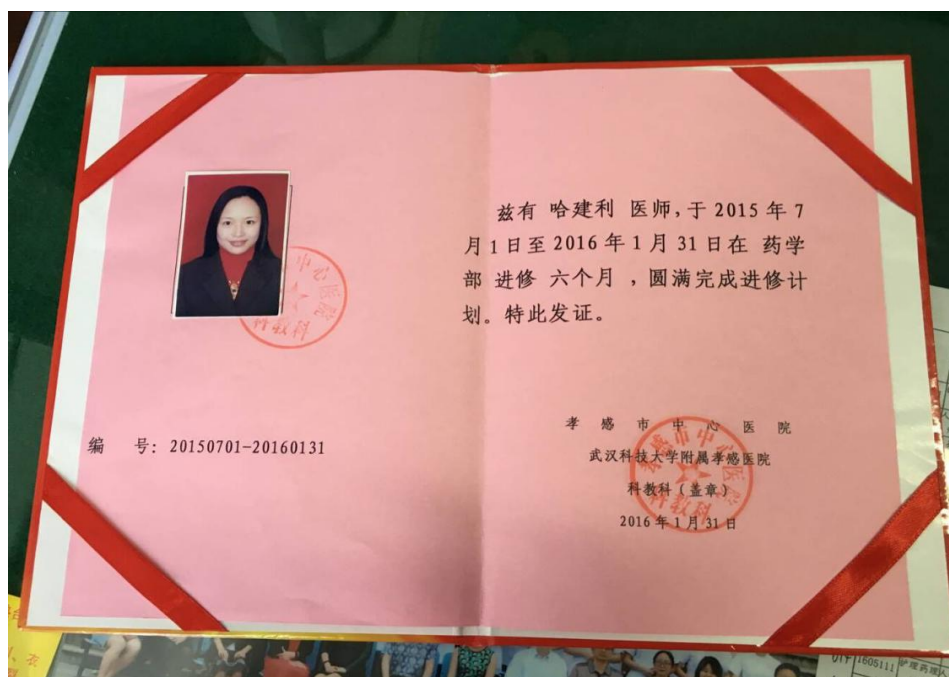 中心医院
科教科
编 号: 20150701-20160131
兹有 哈建利 医师,于 2015 年 7
月 1 日至 2016 年 1 月 31 日在 药学
部 进修 六个月 ,圆满完成进修计
划。特此发证。
孝 感 市 中 心 医 院
武汉科技大学附属孝感医院
科教科(盖章)
2016 年 1 月 31 日
孝感市中心医院
科教科
1605111